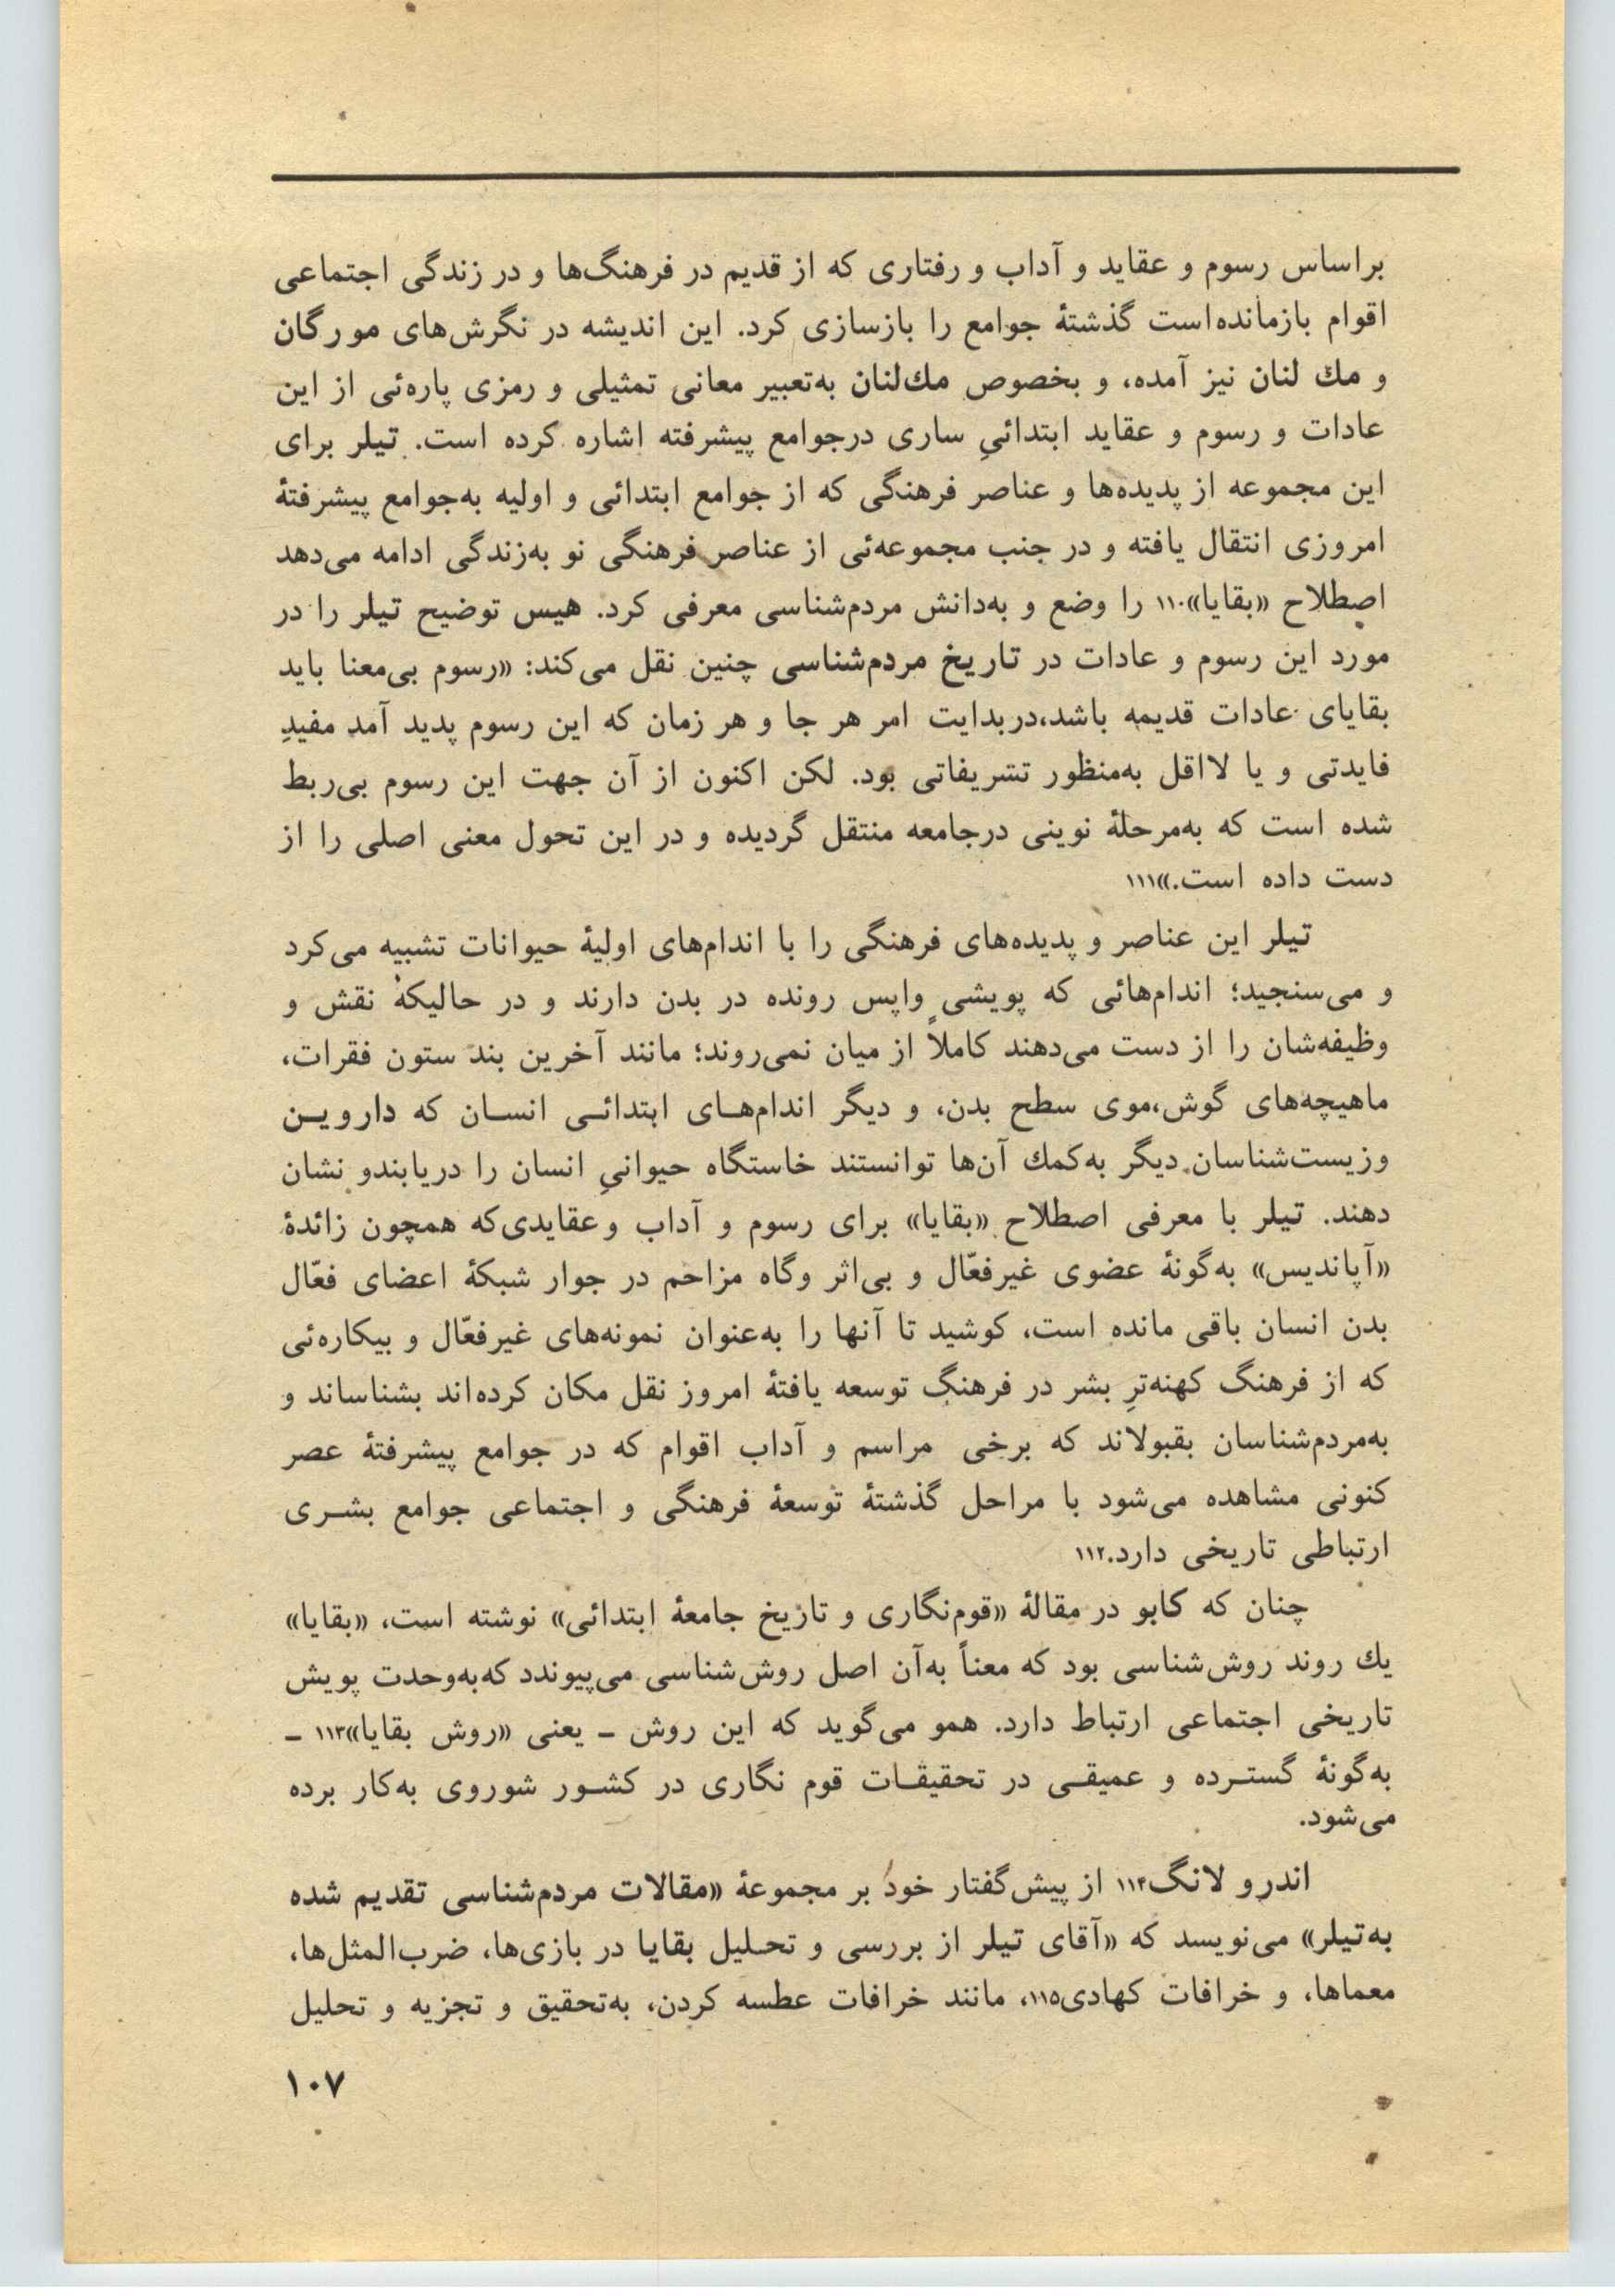 براساس رسوم و عقاید و آداب و رفتاری که از قدیم در فرهنگ‌ها و در زندگی اجتماعی
اقوام بازمانده‌است گذشتهٔ جوامع را بازسازی کرد. این اندیشه در نگرش‌های مورگان
و مك لنان نیز آمده، و بخصوص مك‌لنان به‌تعبیر معانی تمثیلی و رمزی پاره‌ئی از این
عادات و رسوم و عقاید ابتدائیِ ساری درجوامع پیشرفته اشاره کرده است. تیلر برای
این مجموعه از پدیده‌ها و عناصر فرهنگی که از جوامع ابتدائی و اولیه به‌جوامع پیشرفتهٔ
امروزی انتقال یافته و در جنب مجموعه‌ئی از عناصر فرهنگی نو به‌زندگی ادامه می‌دهد
اصطلاح «بقایا»۱۱۰ را وضع و به‌دانش مردم‌شناسی معرفی کرد. هیس توضیح تیلر را در
مورد این رسوم و عادات در تاریخ مردم‌شناسی چنین نقل می‌کند: «رسوم بی‌معنا باید
بقایای عادات قدیمه باشد،دربدایت امر هر جا و هر زمان که این رسوم پدید آمد مفیدِ
فایدتی و یا لااقل به‌منظور تشریفاتی بود. لکن اکنون از آن جهت این رسوم بی‌ربط
شده است که به‌مرحلهٔ نوینی درجامعه منتقل گردیده و در این تحول معنی اصلی را از
دست داده است.»۱۱۱
تیلر این عناصر و پدیده‌های فرهنگی را با اندام‌های اولیهٔ حیوانات تشبیه می‌کرد
و می‌سنجید؛ اندام‌هائی که پویشی واپس رونده در بدن دارند و در حالیکه نقش و
وظیفه‌شان را از دست می‌دهند کاملاً از میان نمی‌روند؛ مانند آخرین بند ستون فقرات،
ماهیچه‌های گوش،موی سطح بدن، و دیگر اندام‌هـای ابتدائـی انسـان که دارویـن
وزیست‌شناسان دیگر به‌کمك آن‌ها توانستند خاستگاه حیوانیِ انسان را دریابندو نشان
دهند. تیلر با معرفی اصطلاح «بقایا» برای رسوم و آداب وعقایدی‌که همچون زائدهٔ
«آپاندیس» به‌گونهٔ عضوی غیرفعّال و بی‌اثر وگاه مزاحم در جوار شبکهٔ اعضای فعّال
بدن انسان باقی مانده است، کوشید تا آنها را به‌عنوان نمونه‌های غیرفعّال و بیکاره‌ئی
که از فرهنگ کهنه‌ترِ بشر در فرهنگ توسعه یافتهٔ امروز نقل مکان کرده‌اند بشناساند و
به‌مردم‌شناسان بقبولاند که برخی مراسم و آداب اقوام که در جوامع پیشرفتهٔ عصر
کنونی مشاهده می‌شود با مراحل گذشتهٔ توسعهٔ فرهنگی و اجتماعی جوامع بشـری
ارتباطی تاریخی دارد.۱۱۲
چنان که کابو در مقالهٔ «قوم‌نگاری و تاریخ جامعهٔ ابتدائی» نوشته است، «بقایا»
یك روند روش‌شناسی بود که معناً به‌آن اصل روش‌شناسی می‌پیوندد که‌به‌وحدت پویش
تاریخی اجتماعی ارتباط دارد. همو می‌گوید که این روش ـ یعنی «روش بقایا»۱۱۳ ـ
به‌گونهٔ گستـرده و عمیقـی در تحقیقـات قوم نگاری در کشـور شوروی به‌کار برده
می‌شود.
اندرو لانگ۱۱۴ از پیش‌گفتار خود بر مجموعهٔ «مقالات مردم‌شناسی تقدیم شده
به‌تیلر» می‌نویسد که «آقای تیلر از بررسی و تحـلیل بقایا در بازی‌ها، ضرب‌المثل‌ها،
معماها، و خرافات کهادی۱۱۵، مانند خرافات عطسه کردن، به‌تحقیق و تجزیه و تحلیل
۱۰۷